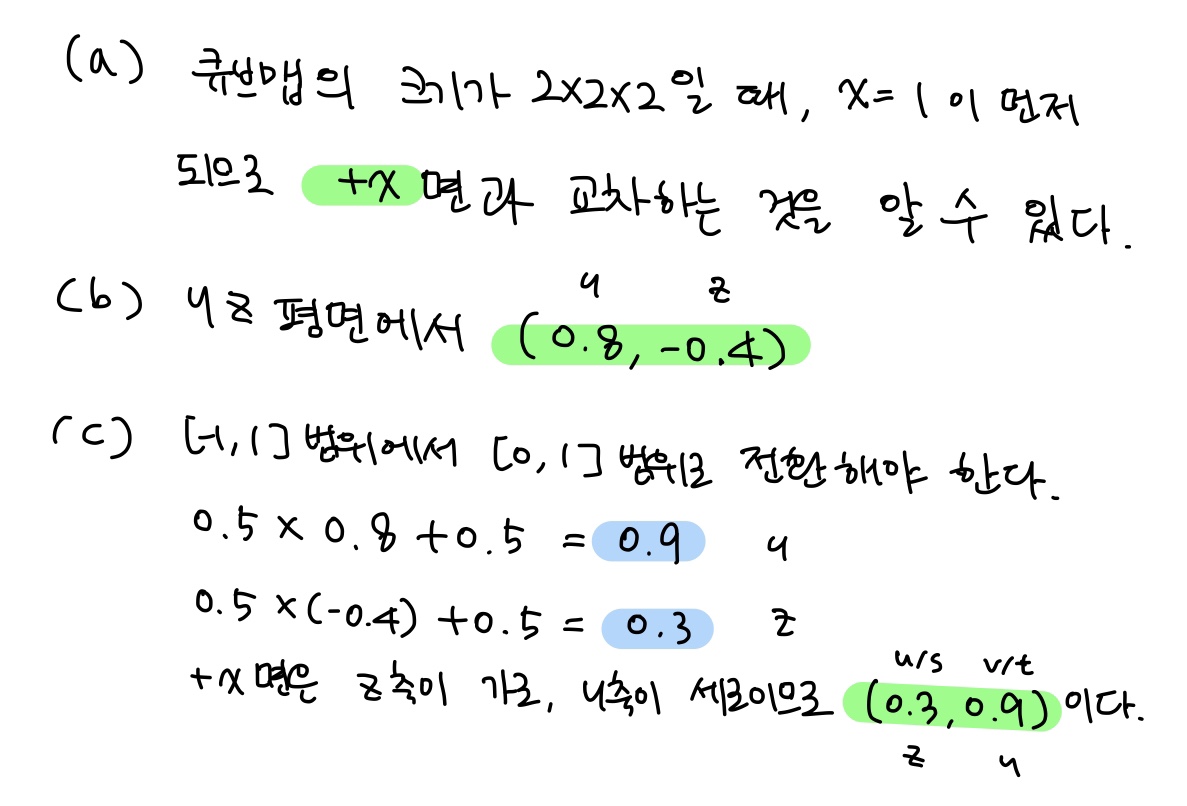 (a) 큐브맵의 크기가 2x2x2일 때, x=1이 먼저
되므로 +x면과 교차하는 것을 알 수 있다.
y z
(b) yz 평면에서 (0.8, -0.4)
(c) [-1, 1] 범위에서 [0, 1] 범위로 전환해야 한다.
0.5 × 0.8 + 0.5 = 0.9 y
0.5 × (-0.4) + 0.5 = 0.3 z
u/s v/t
+x면은 z축이 가로, y축이 세로이므로 (0.3, 0.9)이다.
z y